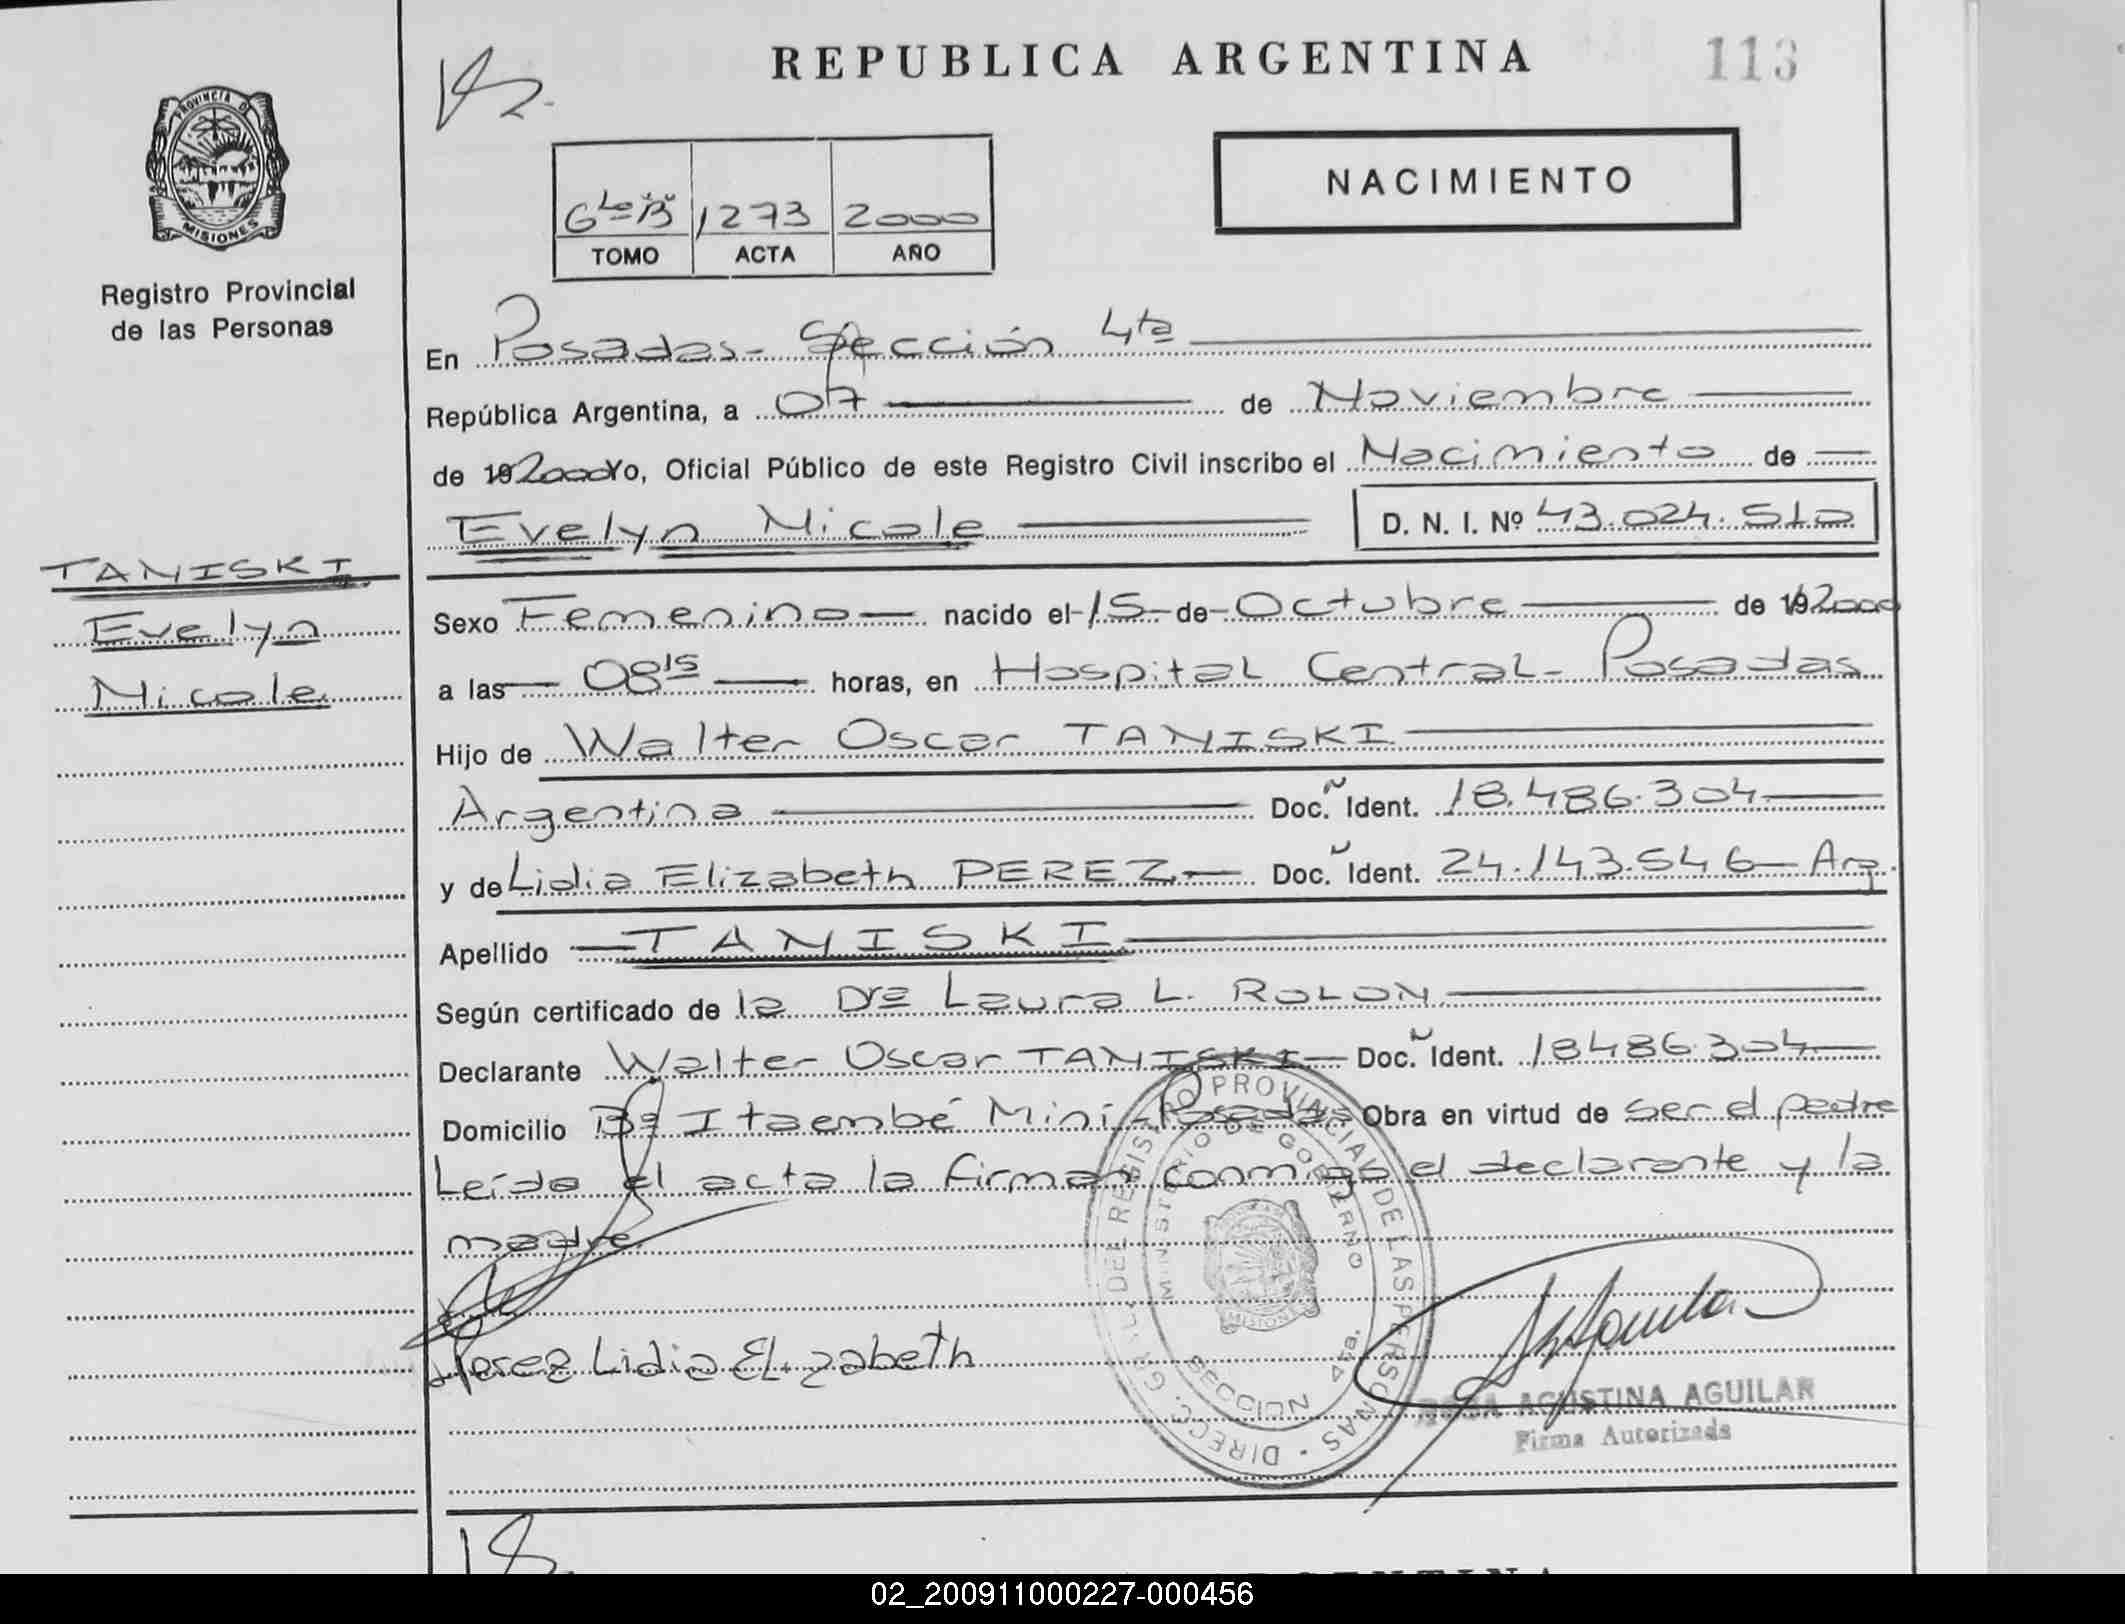 REPUBLICA ARGENTINA
113
PROVINCIA DE
MISIONES
Registro Provincial
de las Personas
6to "B" 1273 2000
TOMO ACTA AÑO
NACIMIENTO
En Posadas- Sección 4ta
República Argentina, a 07 de Noviembre
de 192000 Yo, Oficial Público de este Registro Civil inscribo el Nacimiento de
Evelyn Nicole D. N. I. Nº 43.024.510
TANISKI
Evelyn
Nicole
Sexo Femenino nacido el 15 de Octubre de 192000
a las 08 15 horas, en Hospital Central- Posadas
Hijo de Walter Oscar TANISKI
Argentina Doc. Ident. 18.486.304
y de Lidia Elizabeth PEREZ Doc. Ident. 24.143.546 - Arg.
Apellido TANISKI
Según certificado de la Dra Laura L. ROLON
Declarante Walter Oscar TANISKI Doc. Ident. 18486304
Domicilio Bº Itaembé Miní-Posadas Obra en virtud de ser el padre
Leída el acta la firman conmigo el declarante y la
madre.
Perez Lidia Elizabeth
DIRECC. GRAL. DEL REGISTRO PROVINCIAL DE LAS PERSONAS
MINISTERIO DE GOBIERNO
MISIONES
SECCION 4ta.
AGUSTINA AGUILAR
Firma Autorizada
02_200911000227-000456